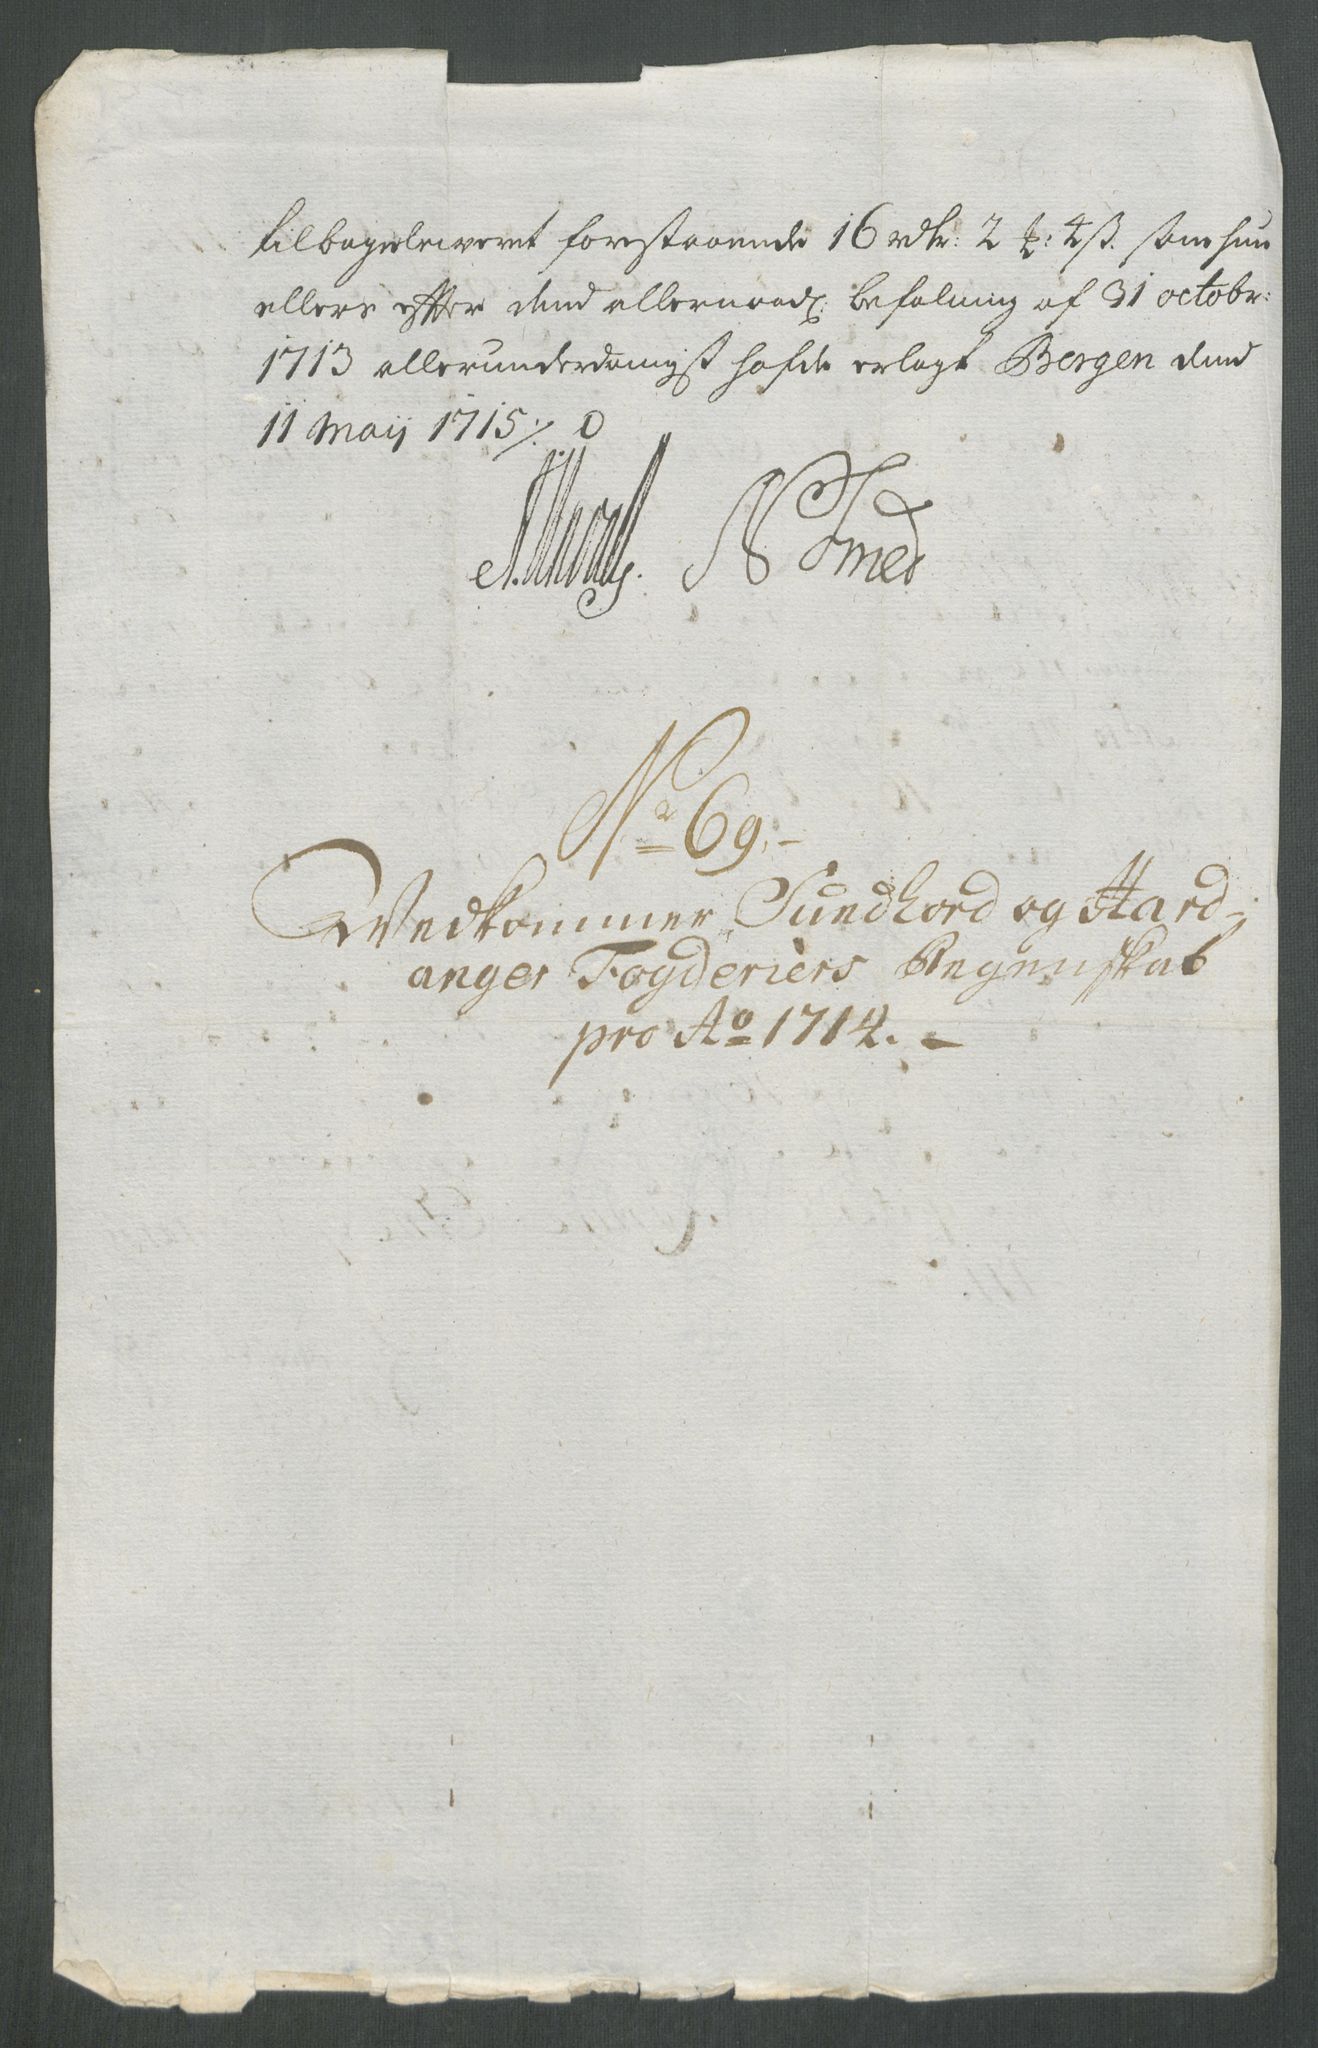 tilbageleweret forestaaende 16 rdr: 2 ꝑ: 4 ß. som hun
ellers effter dend allernaad: befalning af 31 octobr:
1713 allerunderdanigst hafde erlagt Bergen dend
11 Maij 1715 ./.
No 69.-
Wedkommer Sundhord og Hard-
anger Fogderiers Regenskab
pro Ao 1714. -